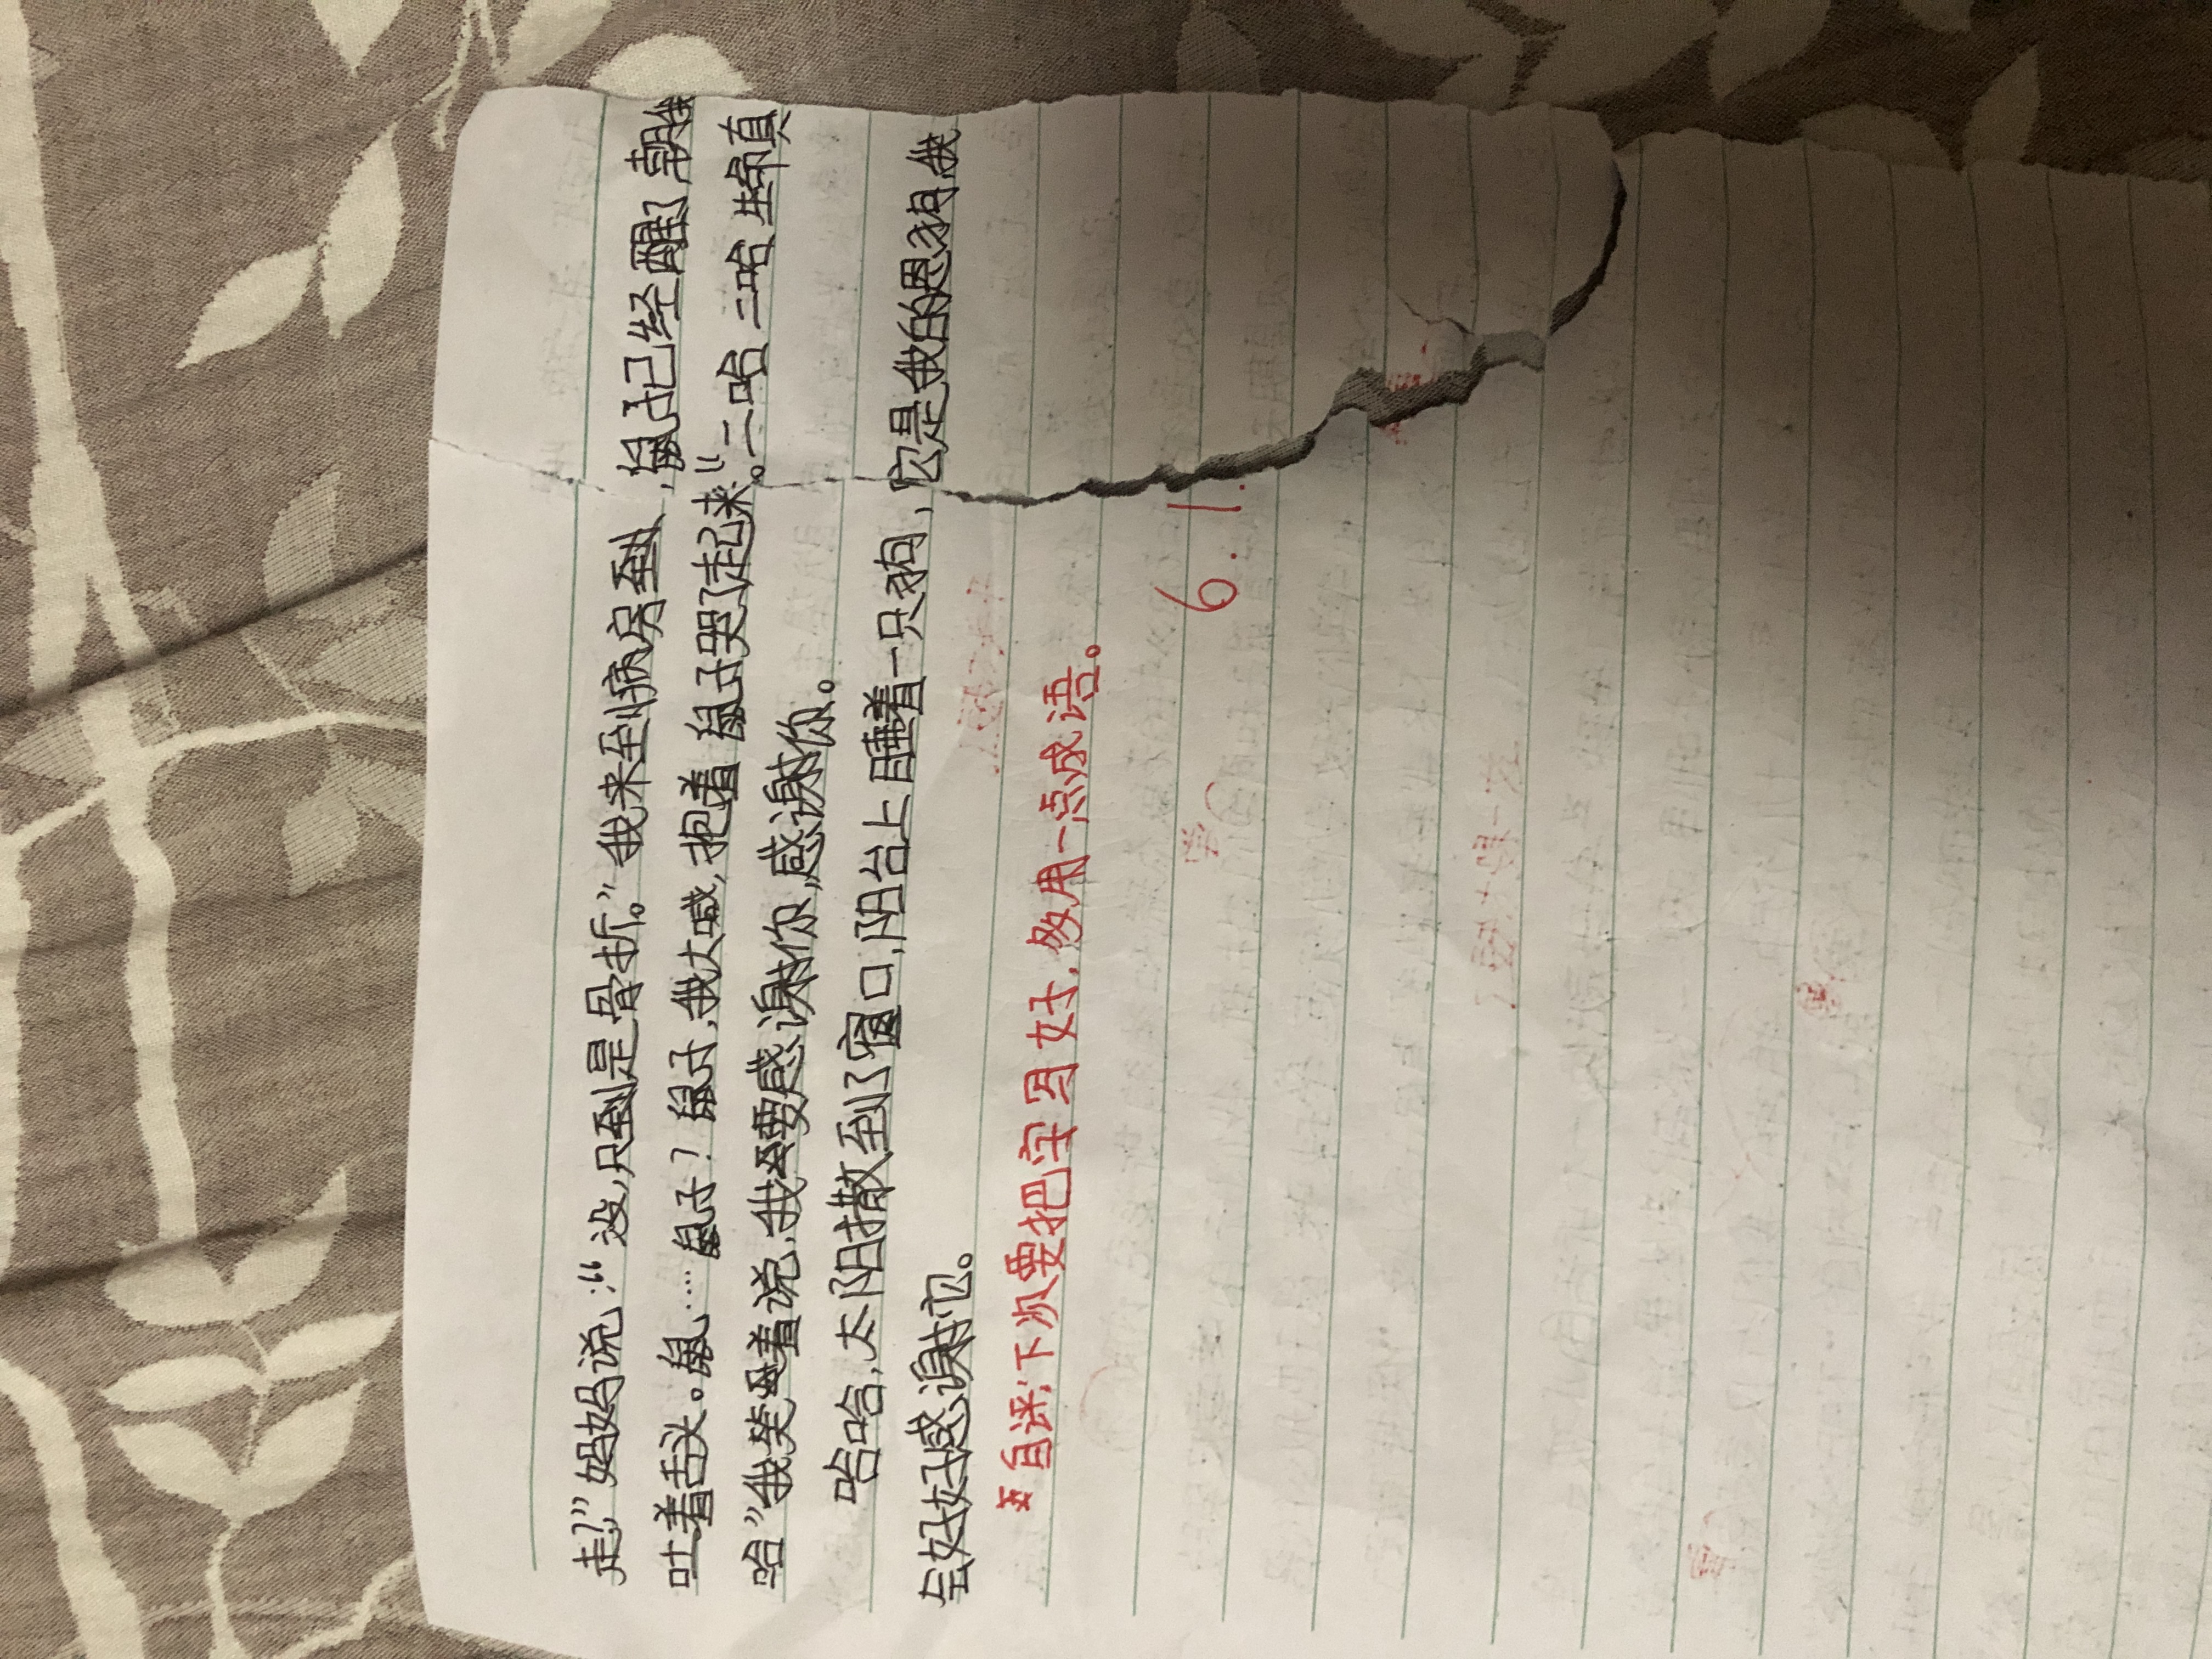 走了”妈妈说:“没,只到是骨折。”我来到病房到,鼠子已经醒了,朝我
吐着舌头。鼠……鼠子?鼠子,我大喊,抱着鼠子哭了起来。”二哈二哈生命真
哈”我笑着说,我要感谢你,感谢你。
哈哈,太阳撒到了窗口,阳台上睡着一只狗,它是我的恩狗,我
会好好感谢它。
自评:下次要把字写好,多用一点成语。
6.1.